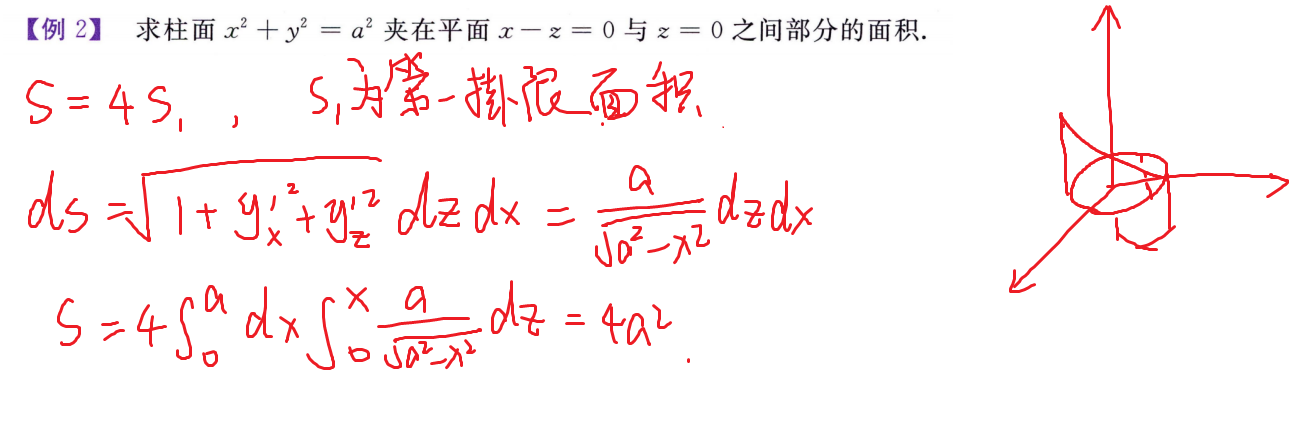 【例 2】 求柱面 x² + y² = a² 夹在平面 x − z = 0 与 z = 0 之间部分的面积.
S = 4S₁ , S₁为第一卦限面积
ds = √(1 + y'ₓ² + y'_z²) dzdx = a/√(a²−x²) dzdx
S = 4∫₀ᵃ dx ∫₀ˣ a/√(a²−x²) dz = 4a² .